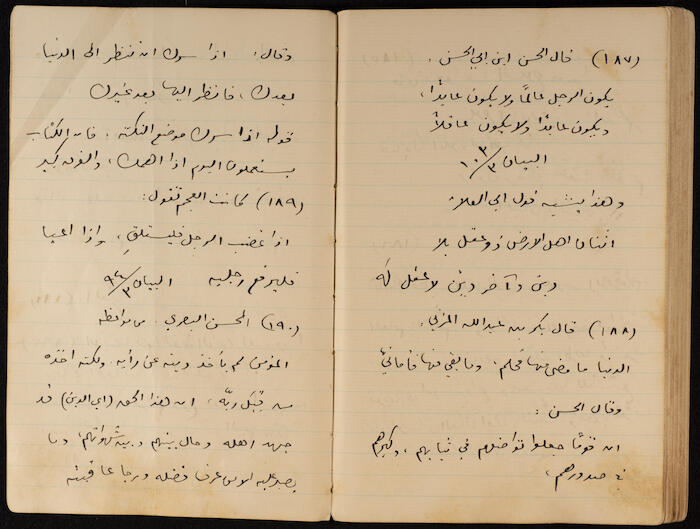 (١٨٧) قال الحسن ابن ابي الحسن .
يكون الرجل عالمًا ولا يكون عابدًا،
ويكون عابدًا ولا يكون عاقلاً
البيان ٣/١٠٣
وهذا يشبه قول ابي العلاء
اثنان اهل الارض ذو عقل بلا
دين وآخر ديّن لا عقل له
(١٨٨) قال بكر بن عبدالله المزني .
الدنيا ما مضى منها فحلم . وما بقي منها فأمانيّ
وقال الحسن :
ان قومًا جعلوا تواضعهم في ثيابهم ، وكبرهم
في صدورهم ،
وقال : اذا سرك ان تنظر الى الدنيا
بعدك ، فانظر اليها بعد غيرك
قوله اذا سرك موضع النكتة . فان الكتاب
يستعملون اليوم اذا اهمك ، والفرق كبير
(١٨٩) كانت العجم تقول :
اذا غضب الرجل فليستلقِ ، واذا اعيا
فليرفع رجليه البيان
(١٩٠) الحسن البصري . من مواعظه
المؤمن لم يأخذ دينه عن رأيه ، ولكنه اخذه
من قِبَل ربّه ، ان هذا الحق (اي الدين) قد
جهد اهله وحال بينهم وبين شهواتهم ، وما
يصبر عليه الا من عرف فضله ورجا عاقبته